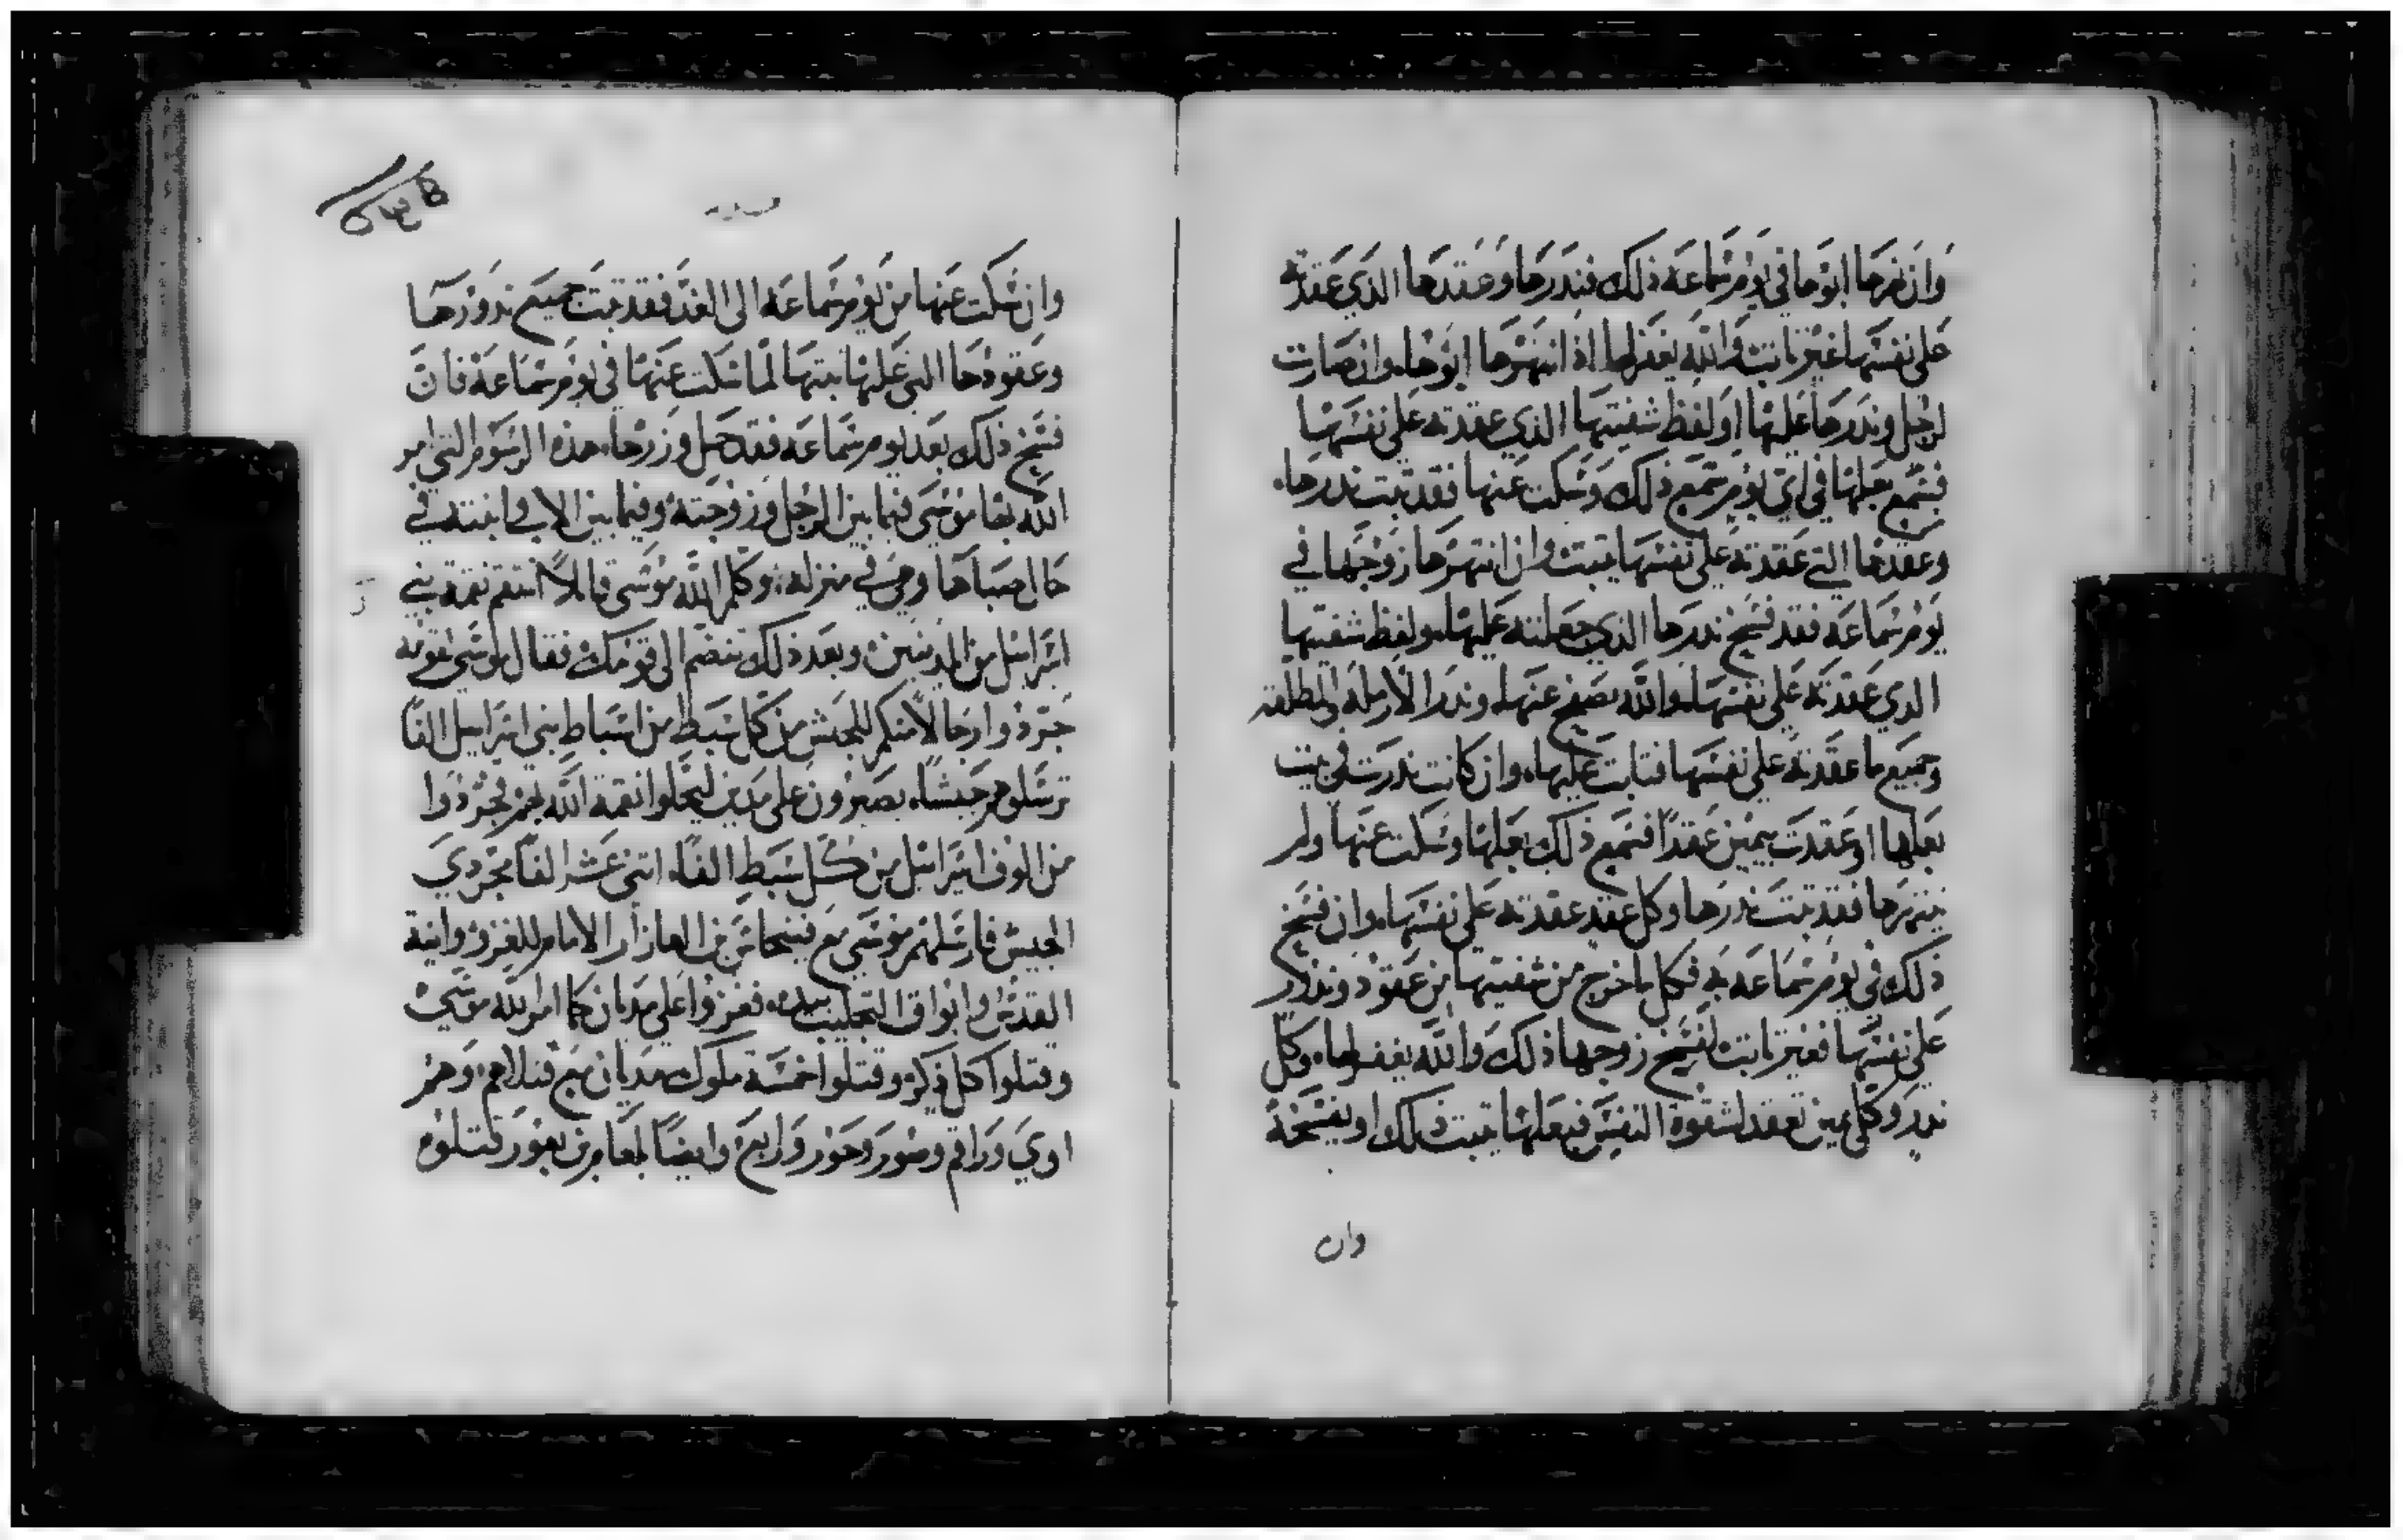 وان نهرها ابوها في يوم سماعه ذلك فندرها وعقدها الذي عقدته
على نفسها غير ثابت والله يغفر لها اذ انتهرها ابوها وان صارت
لرجل وندرها عليها او لفظ شفتيها الذي عقدته على نفسها
فسمع بعلها في اي يوم سمع ذلك وسكت عنها فقد ثبت ندرها
وعقدها التي عقدته على نفسها يتبت وان انتهرها زوجها في
يوم سماعه فقد فسخ ندرها الذي جعلته عليها ولفظ شفتيها
الدي عقدته على نفسها والله يصفح عنها وندر الارمله والمطلقه
وجميع ما عقدته على نفسها فتابت عليها وان كانت ندرت في بيت
بعلها او عقدت بيمين عقدًا فسمع ذلك بعلها وسكت عنها ولم
ينتهرها فقد تبت ندرها وكل عقد عقدته على نفسها وان فسخ
ذلك في يوم سماعه به فكل ما خرج من شفتيها من عقود وندور
على نفسها فغير تابت لفسخ زوجها ذلك والله يغفر لها وكل
ندر وكل يمين تعقد لشقوة النفس فبعلها يتبت ذلك او يفسخه
وان
وان سكت عنها من يوم سماعه الى الغد فقد تبت جميع ندورها
وعقودها التي عليها تبتها لما سكت عنها في يوم سماعه فان
فسخ ذلك بعد يوم سماعه فقد حمل وزرها هذه الرسوم التي امر
الله بها موسى فيما بين الرجل وزوجته وفيما بين الاب وابنته في
حال صباها وهي في منزله وكلم الله موسى قايلاً انتقم نقمة بني
اسرائيل من المدينيين وبعد ذلك تنضم الى قومك فقال موسى لقومه
جردوا رجالاً منكم للجيش من كل سبط من اسباط بني اسراييل الفًا
ترسلوهم جيشًا يصيرون على مدين ليحلوا نقمة الله بهم فجردوا
من الوف اسرائيل من كل سبط الفًا اتنى عشر الفًا مجردي
الجيش فارسلهم موسى مع فينحاس بن العازار الامام للغزو وانية
القدس وابواق التجليب بيده فغزوا على مديان كما امر الله موسى
وقتلوا كل ذكر وقتلوا خمسة ملوك مديان مع قتلاهم وهم
اوي وراقم وصور وحور ورابع وايضًا بلعام بن بعور قتلوه